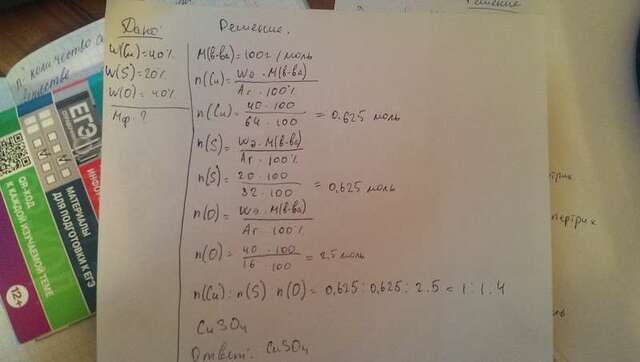 Дано:
W(Cu)=40%
W(S)=20%
W(O)=40%
Мф-?
Решение.
M(в-ва)=100г/моль
n(Cu)= Wэ·M(в-ва)
Ar·100%
n(Cu)= 40·100
64·100
= 0.625 моль
n(S)= Wэ·M(в-ва)
Ar·100%
n(S)= 20·100
32·100
= 0,625 моль
n(O)= Wэ·M(в-ва)
Ar·100%
n(O)= 40·100
16·100
= 2.5 моль
n(Cu):n(S) n(O)= 0,625:0,625:2.5 = 1:1:4
CuSO4
Ответ: CuSO4
количество
ЕГЭ
QR-КОД
К КАЖДОЙ ИЗУЧАЕМОЙ ТЕМЕ
МАТЕРИАЛЫ
ДЛЯ ПОДГОТОВКИ К ЕГЭ
12+
Решение